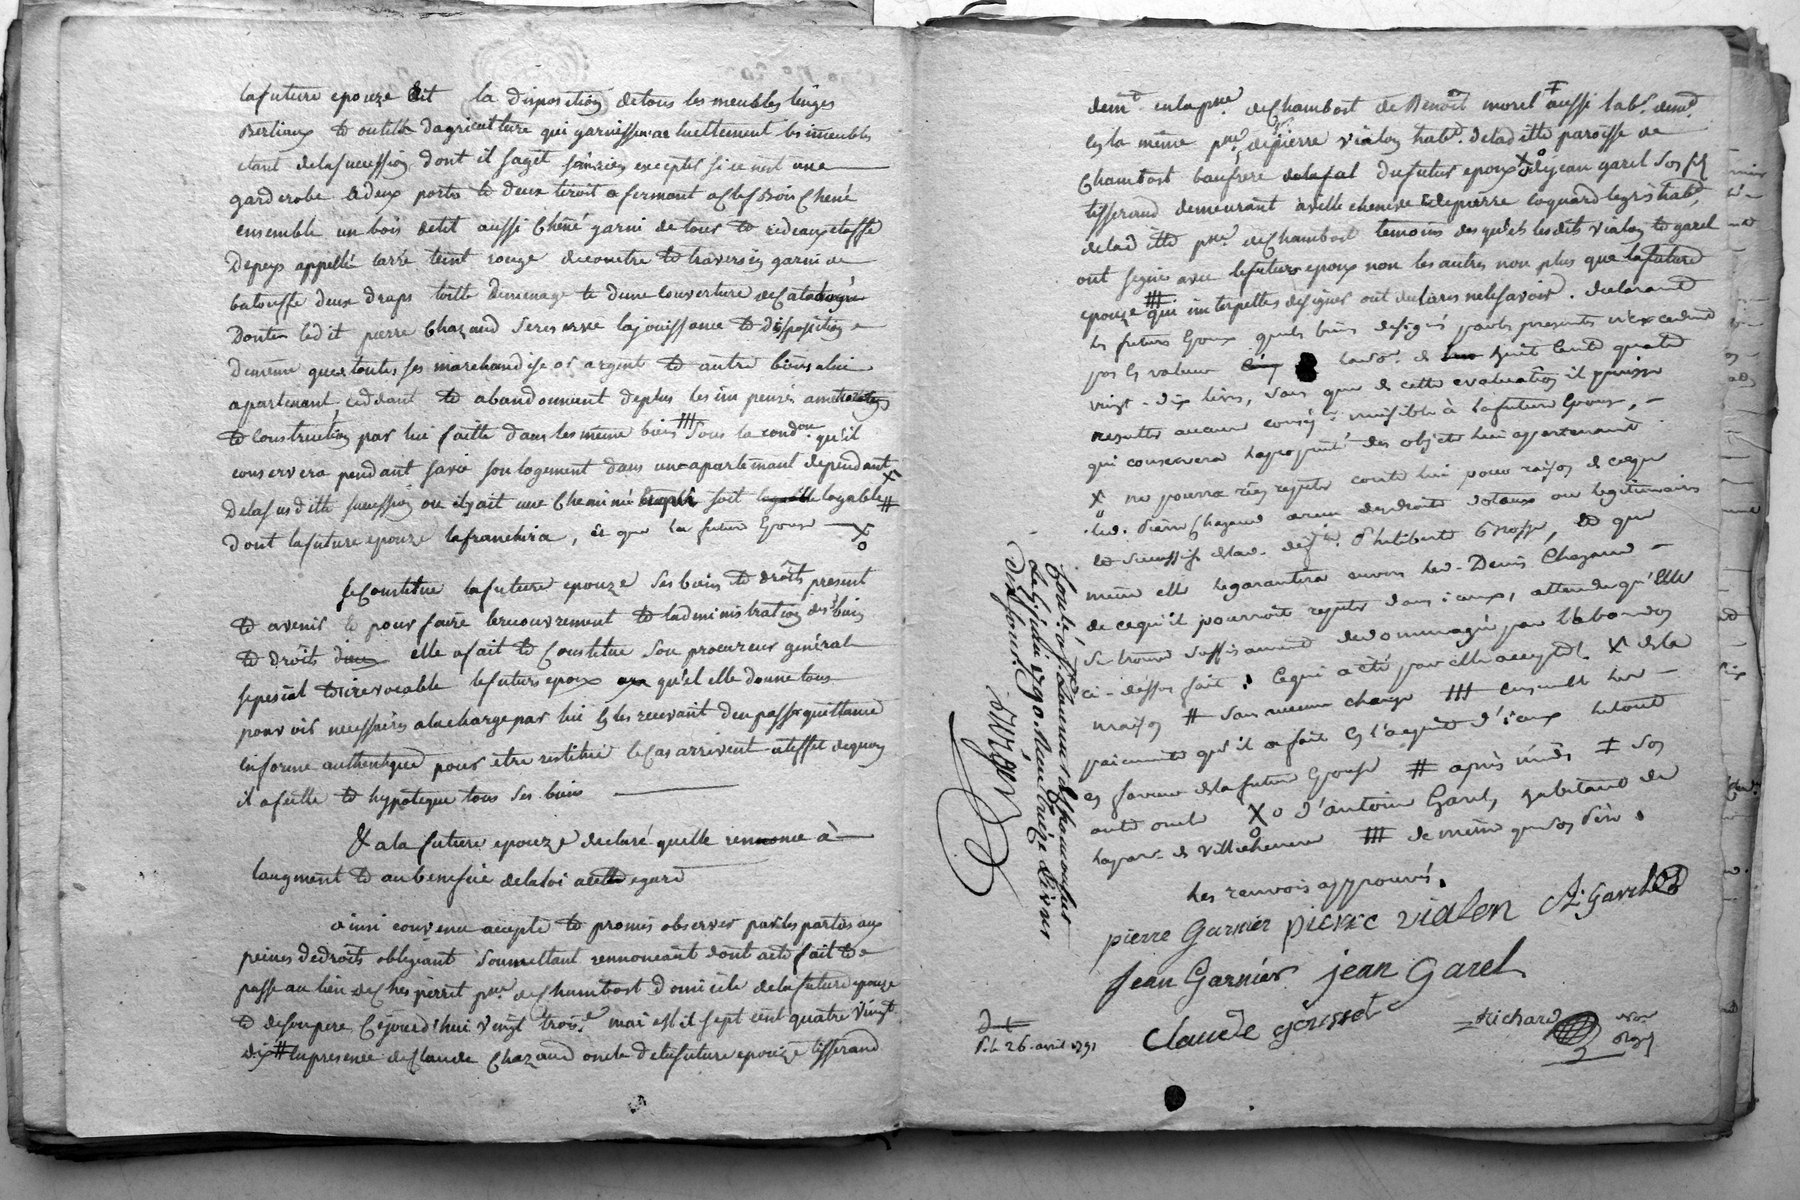 la future epouze dit la disposition de tous les meubles linges
Bestiaux & outils d'agriculture qui garnissent actuellement les immeubles
etant de la succession dont il sagit sans rien excepter si ce n'est une
garderobe à deux portes & deux tiroit a fermant a Clef Bois Chené
ensemble un bois de lit aussi Chené garni de tour & rideaux etoffe
de pays appellé carré teint rouge & traversin garni de
batouffe deux draps toille de menage & d'une couverture de Catalogne
Dont ledit pierre Chazaud se reserve la jouissance & disposition
de meme que toutes ses marchandise or argent & autre biens a lui
apartenant, ceddant & abandonnant de plus les
& Construction par lui faitte dans les même biens # sous la condon. qu'il
conservera pendant sa vie son logement dans un apartement dependant
de la susditte succession ou il y ait une Cheminé soit logable #
dont la future epouze l'affranchira, et que la future Epouse
Se Constitue la future epouze ses biens & droits present
& avenir & pour faire le recouvrement & l'administration des biens
& droits elle a fait & Constitue son procureur général
spesial & irrevocable le futur epoux qu'el elle donne tous
pouvoir necessaires a la charge par lui en les recevant d'en passer quittance
en forme authentique pour etre restitué le cas arrivent a l'effet de quoy
il afecte & hypoteque tous ses biens
Et a la future epouze declaré quelle rennonce à
laugment & au benefice de la loi a cette egard
ainsi convenu accepté & promis observer par les parties aux
peines de droits obligeant soumettant rennonceant dont acte fait &
passé au lieu de Ches perret psse. de Chambost domicile de la future epouze
& de son pere Cejourd'hui vingt troise. mai mil sept cent quatre vingt
dix # en presence de Claude Chazaud oncle de la future epouze tisserand
demt. en la psse. de Chambost de Benoît morel aussi labr. demt.
en la même psse. de pierre vialon habt. de la ditte paroisse de
Chambost baufrere du futur epoux de jean garel son fils
tisserand demeurant a ville cheneve & de pierre coquard habt.
de la ditte psse. de Chambost temoins desquels lesdits vialon & garel
ont signés avec le futur epoux non les autres non plus que la future
epouze # qui interpellés de signer ont declarés ne le savoir. declarant
les futurs Epoux que les biens designés par les presentes n'excedent
pas en valeur huit Cents quatre
vingt-dix livres, sans que de cette evaluation il puisse
resulter aucune nuisible à la future Epouse,
qui conservera la proprieté des objets lui appartenant.
X ne pourra rien repeter contre lui pour raison de ce que
led. Pierre Chazaud aura des droits dotaux ou legitimaires
la succession de lad. Philiberte Grosse, & que
même elle le garantira envers led. Denis Chazaud
de ce qu'il pourroit repeter dans iceux, attendu qu'Elle
se trouve suffisament dedommagée par l'abandon
ci-dessus fait; ce qui a été par elle accepté. X de la
maison # sans aucune charge # ensemble les
paiements qu'il a fait en l'acquit d'iceux le tout
en faveur de la future Epouse # après midi ‡ son
autre oncle Xo d'antoine Garel, habitant de
la par. de villecheneve # de même que son Père.
Les renvois approuvés.
pierre Garnier pierre vialon A. Garel
Jean Garnier jean Garel
Claude gousset
Richard
Contrôlé à Chambost
le 6 juin 1790. Recu treize livres
dix sous.
P. le 26. avril 1791